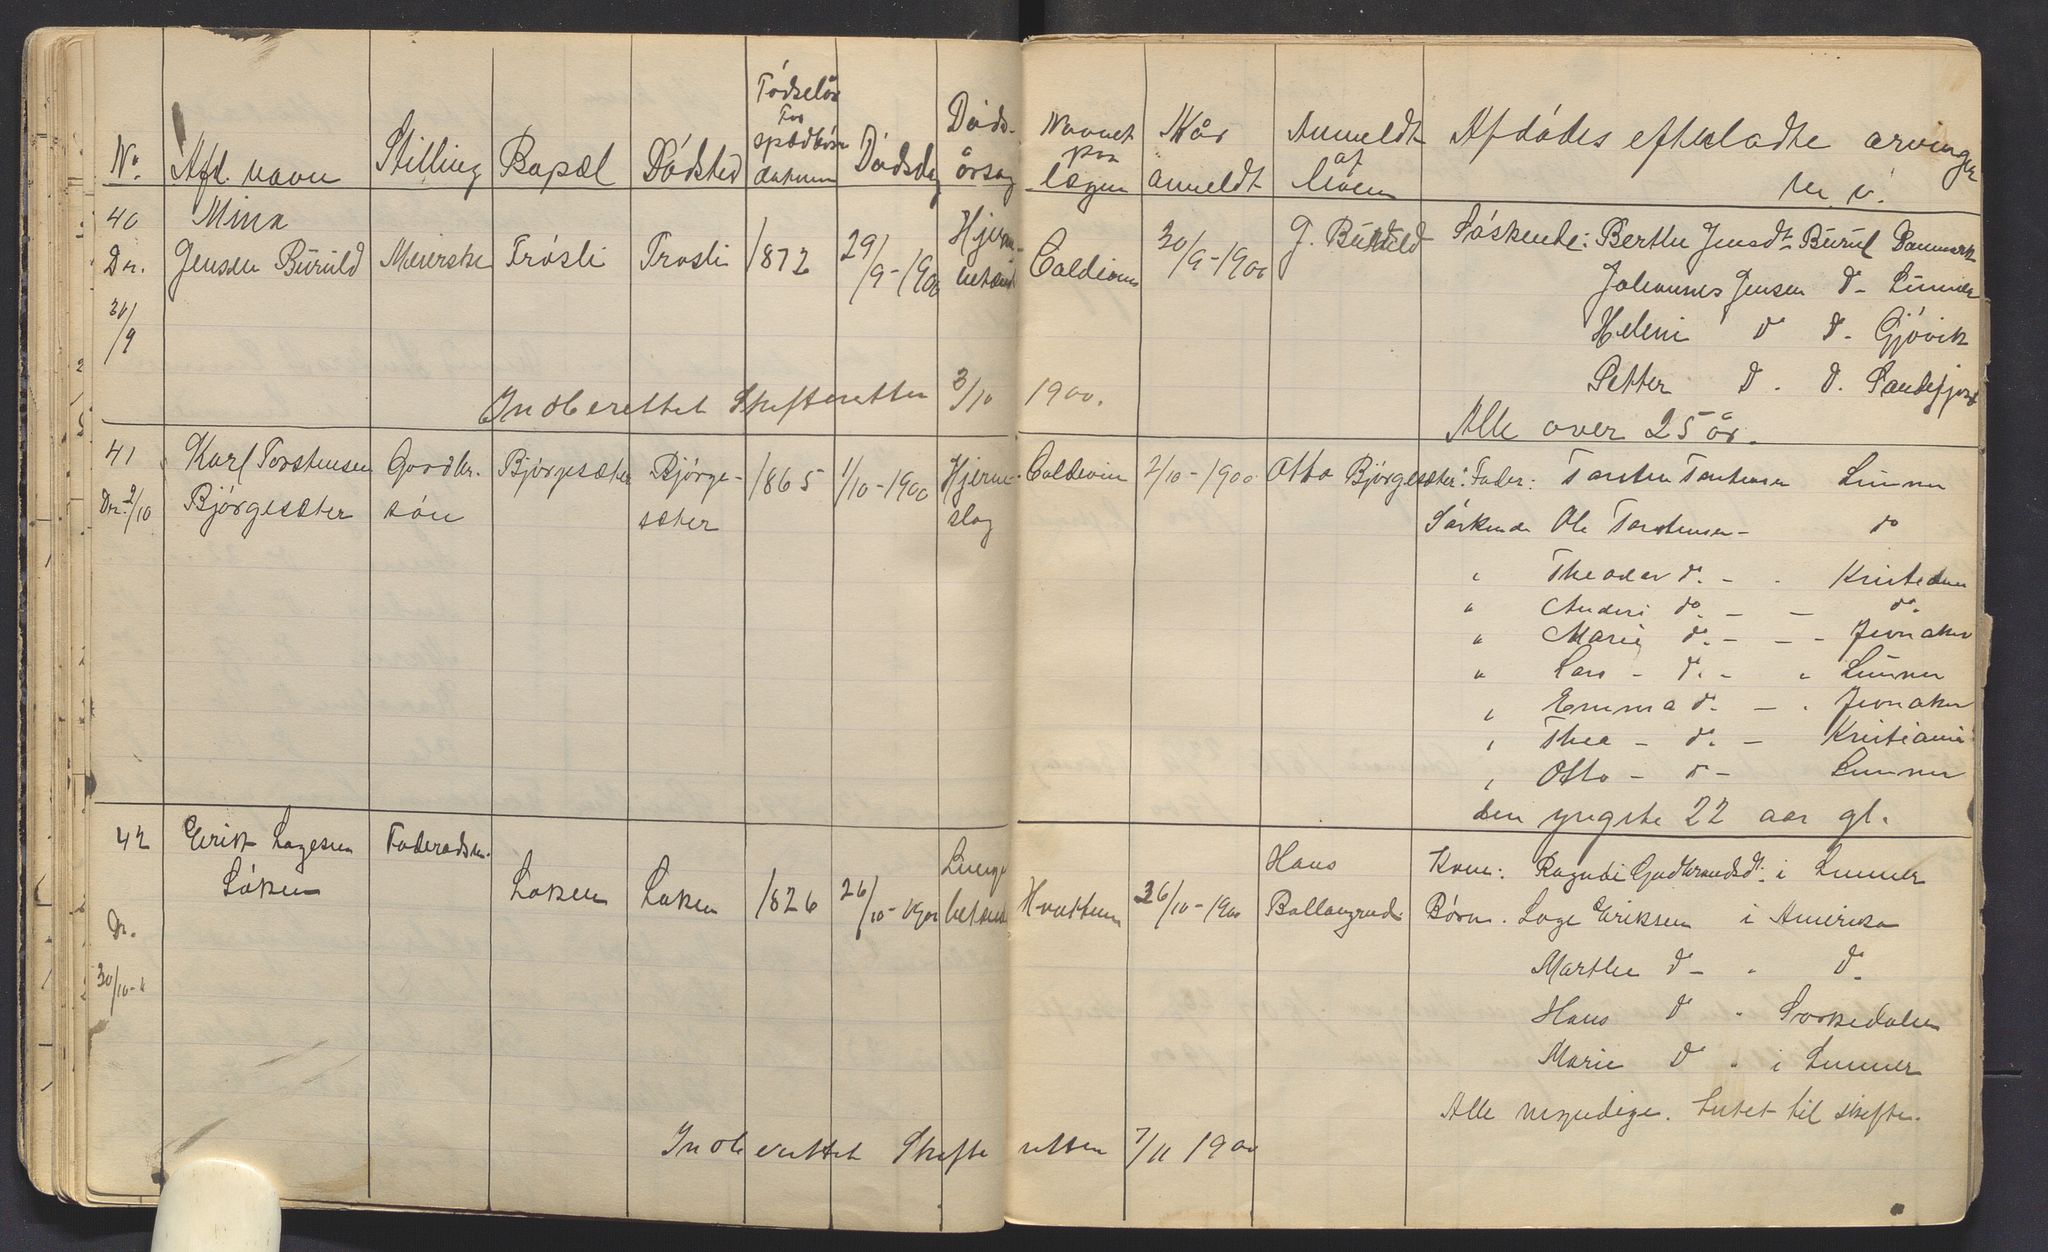 No.
Afd. navn
Stilling
Bopæl
Dødsted
Fødselsår
For
spædbørn
datum
Dødsdag
Døds-
årsag
Navnet
paa
lægen
Når
anmeldt
Anmeldt
af
hvem
Afdødes efterladte arvinger
m. v.
40
Dr.
30/9
Mina
Jensen Buruld
Meierske
Trøsli
Trøsli
1872
29/9-1900
Hjerne-
betænd
Caldevin
30/9-1900
J. Buruld
Søskende: Berthe Jensdt. Burul Danmark
Johannes Jensen do- Lunner
Helene do do- Gjøvik
Petter do. do. Sandefjord
Alle over 25 år.
Indberettet Skifteretten 3/10 1900.
41
Dr. 2/10
Karl Torstensen
Bjørgesæter
Gaardbr.
søn
Bjørgesæter
Bjørge-
sæter
1865
1/10-1900
Hjerne-
slag
Caldevin
2/10-1900
Otto Bjørgesæter
Fader: Torsten Torstensen Lunner
Søskende Ole Torstensen- do
" Theodor do. - - Kristiania
" Anders do. - - do.
" Marie do. - - - Jevnaker
" Lars - do. - " Lunner
" Emma do. - - Jevnaker
" Thea - do. - Kristiania
" Otto - do - Lunner
den yngste 22 aar gl.
42
Dr.
30/10
Erik Lagesen
Løken
Føderaadsm.
Løken
Løken
1826
26/10-1900
Lunge
betænd
Hvattum
26/10-1900
Hans
Ballangrud
Kone: Ragndi Gudbrandsdt. i Lunner
Børn. Lage Eriksen i Amerika
Marthe do- " do-
Hans do " Sørkedalen
Marie do " i Lunner
Alle myndige. Intet til skifte.
Indberettet Skifteretten 7/11 1900